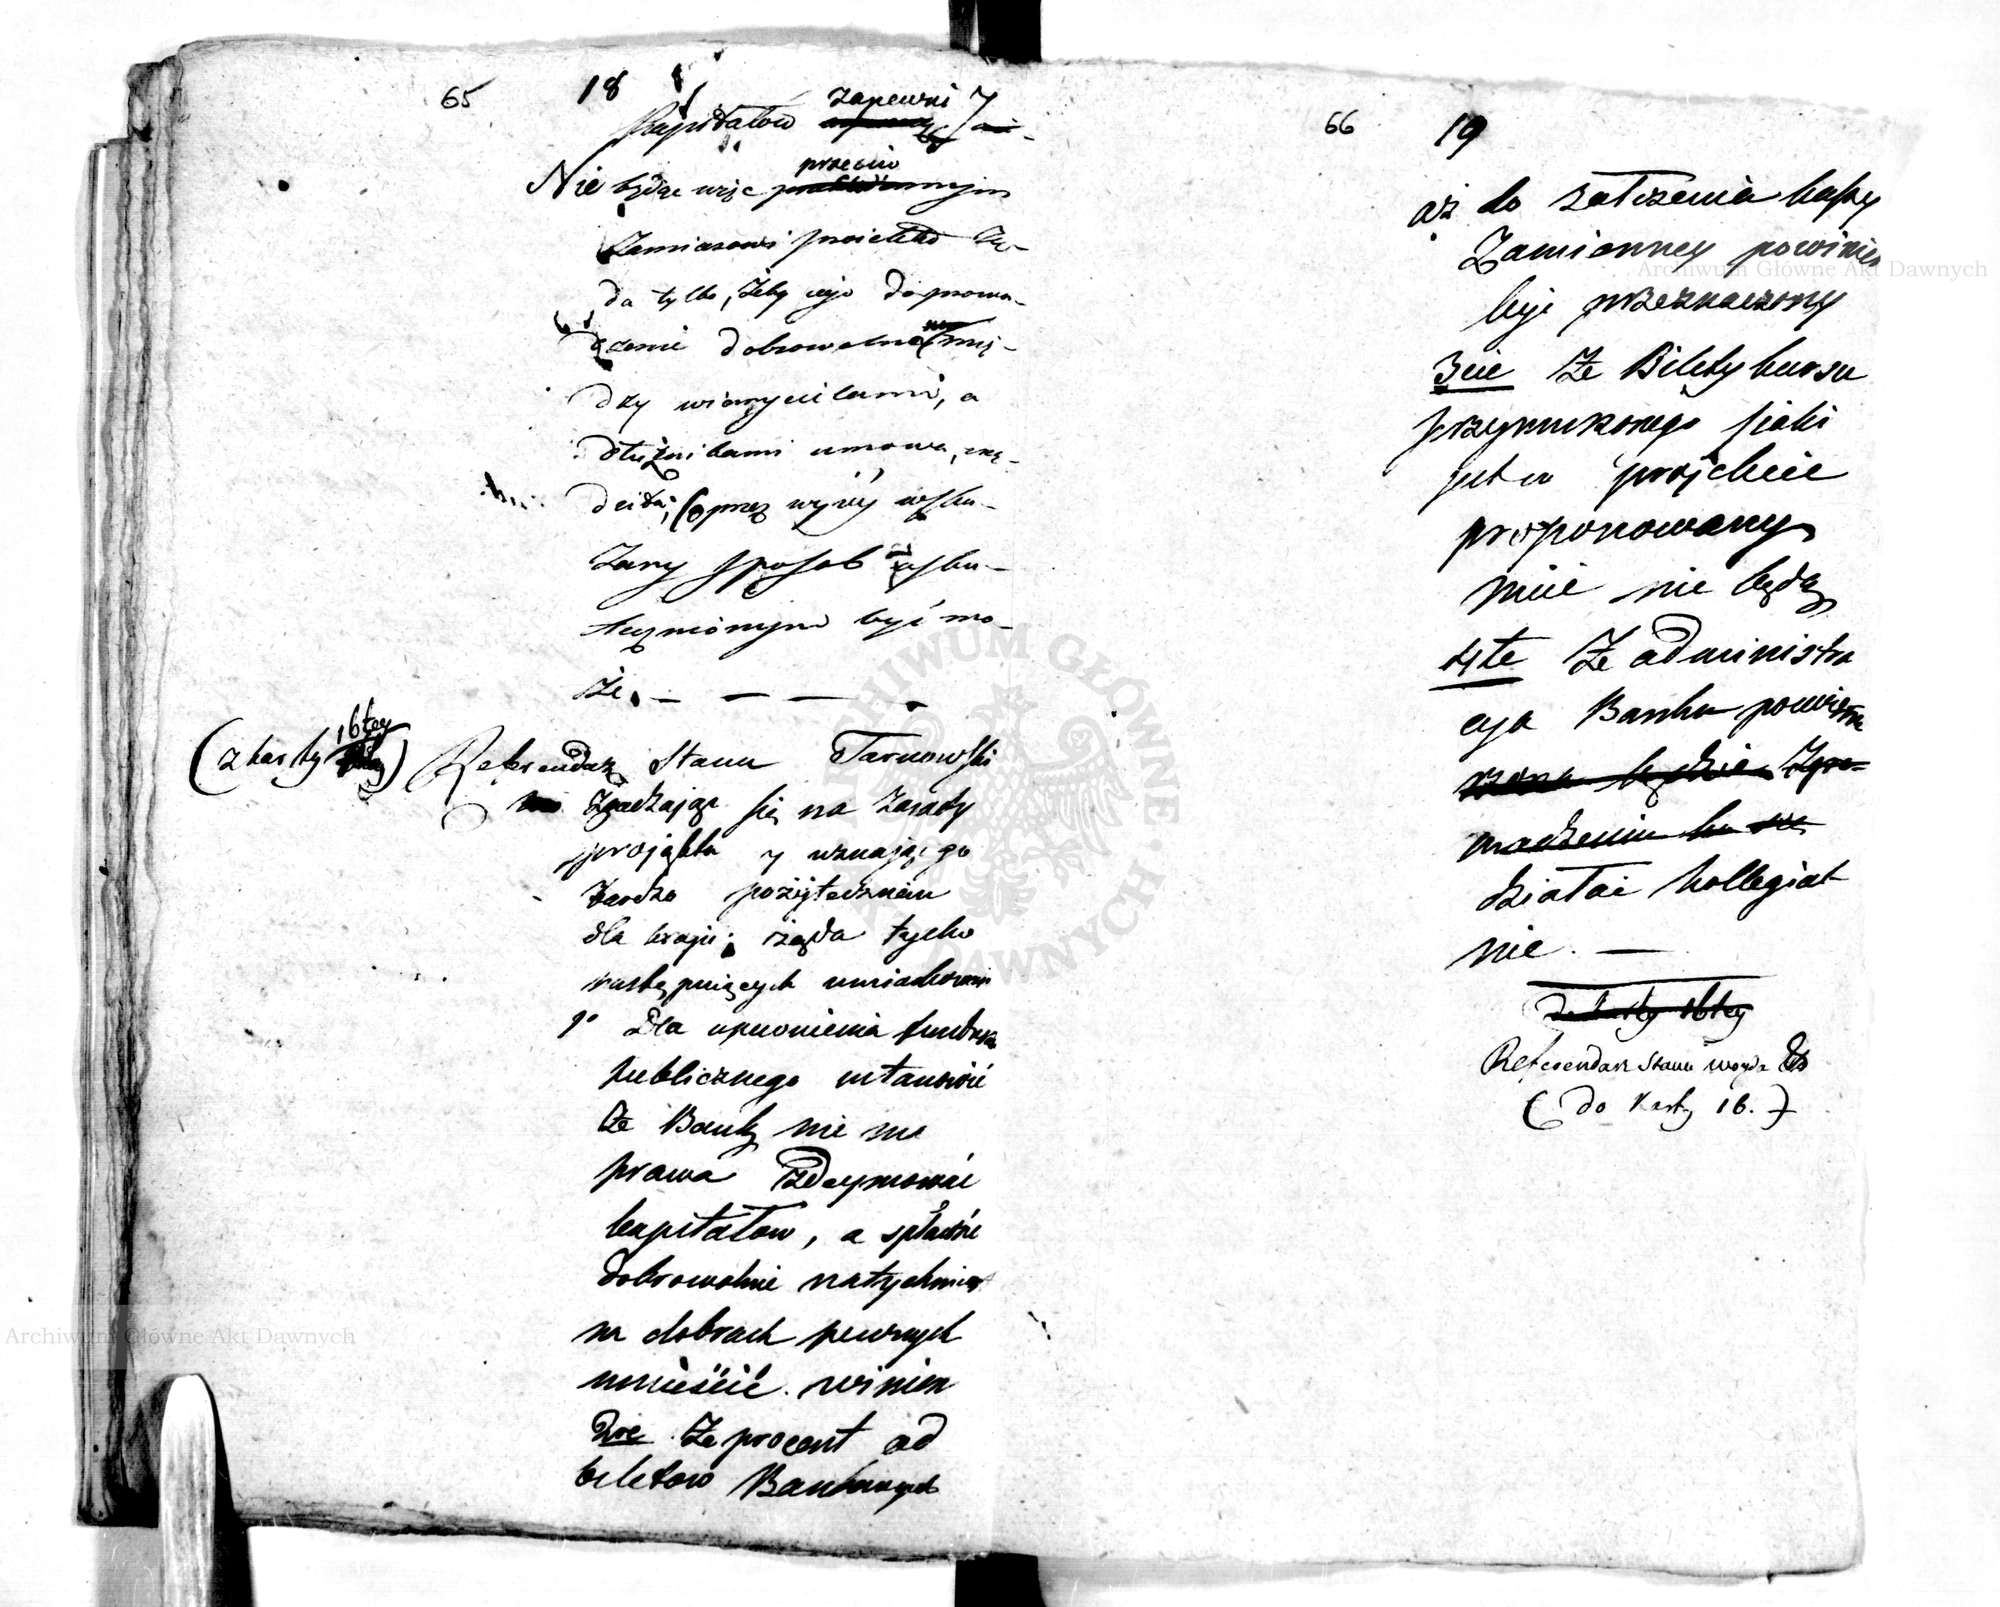 65
18
Kapitałow zapewni
Nie będąc więc przeciw
zamiarowi projektu żą-
da tylko, żeby jego doprowa-
dzenie dobrowolna mię-
dzy wierzycielami, a
dłużnikami umowa, urzą-
dziła; oprcz wyżey wska-
zany sposob usku-
tecznionym być mo-
że. — — — .
(z karty 16tey)
Referendarz Stanu Tarnowski
Zgadzając się na zasady
projektu y uznając go
bardzo pożytecznem
dla kraju; żąda tycho
następuiących umiarkowań
1° Dla upewnienia funduszu
publicznego ustanowić
że Banky nie ma
prawa zdeymować
kapitałow, a spławić
dobrowolnie natychmiast
na dobrach pewnych
umieścić winien
2re że procent od
biletow Bankowych
66
19
aż do założenia kassy
Zamienney powinien
być przeznaczony
3cie że Bilety kursu
przymuszonego jaki
jest w projekcie
proponowany
mieć nie będą
4te że administra
cya Banku powinna
działać kollegial
nie. —
do Karty 16tey
Referendarz Stanu Woyda
(do Karty 16.)
Archiwum Główne Akt Dawnych
Archiwum Główne Akt Dawnych
ARCHIWUM GŁÓWNE AKT DAWNYCH